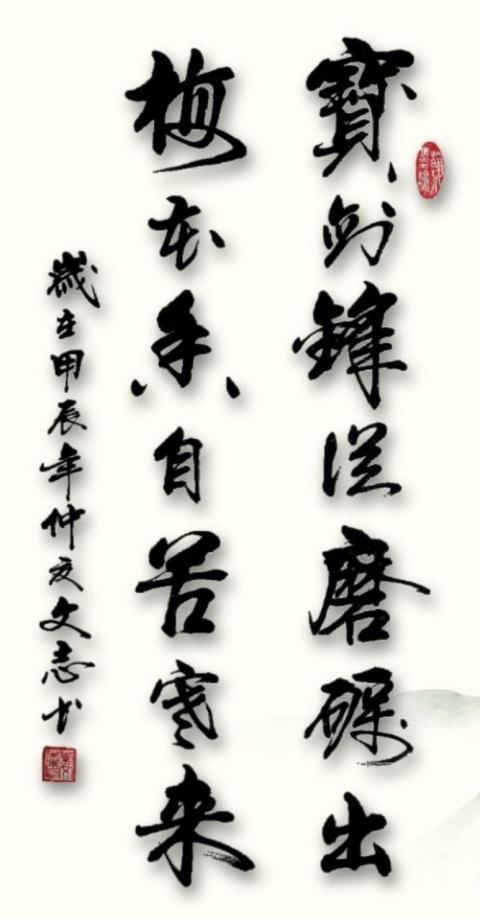 寶剑鋒從磨礪出
梅花香自苦寒来
歲在甲辰年仲夏文志书